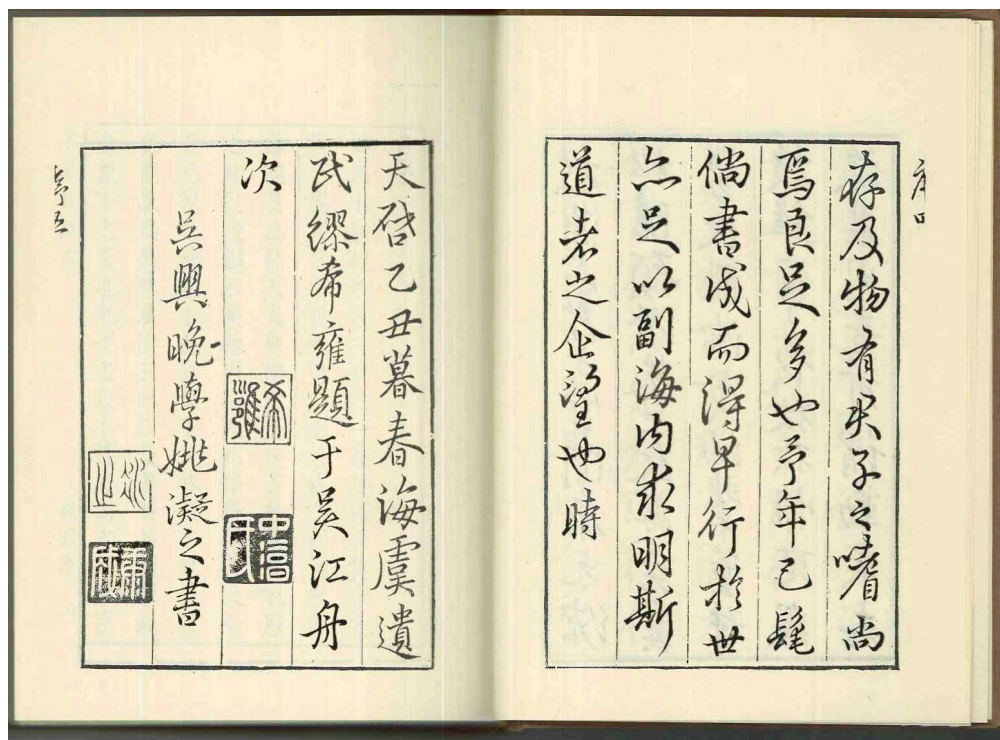 存及物有矣子之嗜尚
焉良足多也予年已髦
倘書成而得早行於世
亦足以副海內求明斯
道者之企望也時
天啓乙丑暮春海虞遺
民繆希雍題于吳江舟
次
吳興晚學姚凝之書
希雍